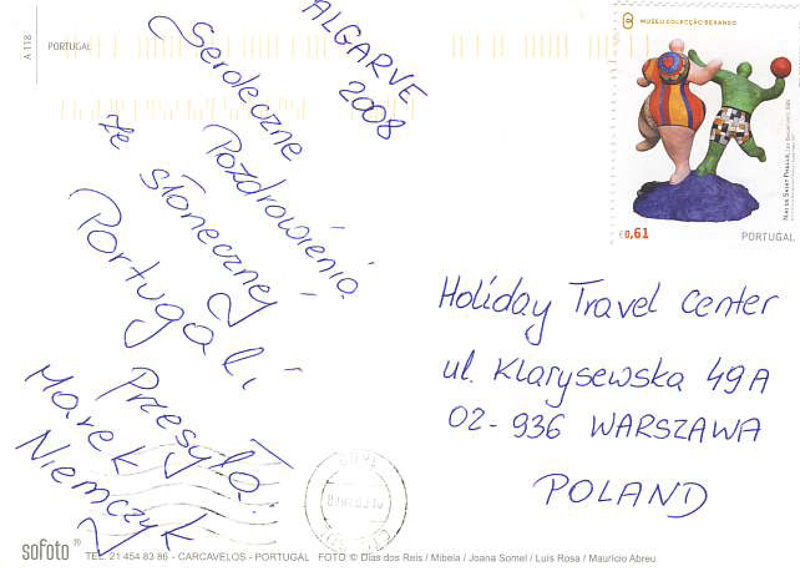 A 118
PORTUGAL
ALGARVE
2008
Serdeczne
Pozdrowienia
ze słonecznej
Portugalii
Przesyła
Marek
Niemczyk
MUSEU COLECÇÃO BERARDO
€0,61
PORTUGAL
Holiday Travel Center
ul. Klarysewska 49A
02-936 WARSZAWA
POLAND
sofoto®
TEL. 21 454 83 86 - CARCAVELOS - PORTUGAL FOTO © Dias dos Reis / Mibela / Joana Somel / Luis Rosa / Mauricio Abreu